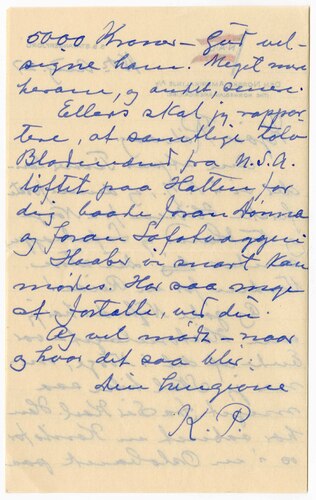 5000 Kroner – Gud vel-
signe ham. Meget mere
herom, og andet, senere.
Ellers skal jeg rappor-
tere, at samtlige tolv
Bladmænd fra N.S.A.
løftet paa Hatten for
dig baade foran Donna
og foran
Haaber vi snart kan
mødes. Har saa meget
at fortælle, ved du.
Og vel mødt – naar
og hvor det saa blir.
Din hengivne
K. P.